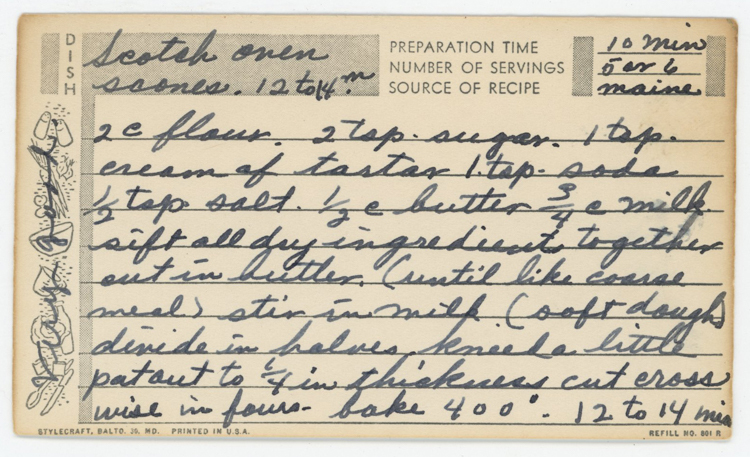 DISH
Scotch oven
scones. 12 to 14 m
PREPARATION TIME 10 min
NUMBER OF SERVINGS 5 or 6
SOURCE OF RECIPE maine
2 c flour. 2 tsp. sugar. 1 tsp.
cream of tartar 1 tsp. soda
1/2 tsp salt. 1/2 c butter 3/4 c milk
sift all dry ingredients together
cut in butter. (until like coarse
meal) stir in milk (soft dough)
divide in halves, kneed a little
pat out to 1/4 in thickness cut cross
wise in fours- bake 400°. 12 to 14 min
STYLECRAFT, BALTO. 25, MD. PRINTED IN U.S.A.
REFILL NO. 801 R